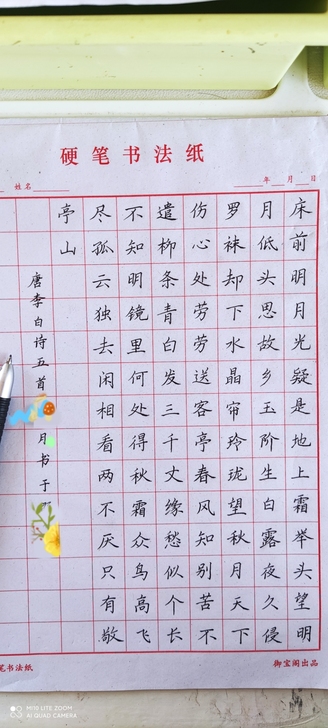 硬笔书法纸
姓名
年 月 日
床前明月光疑是地上霜举头望明
月低头思故乡玉阶生白露夜久侵
罗袜却下水晶帘玲珑望秋月天下
伤心处劳劳送客亭春风知别苦不
遣柳条青白发三千丈缘愁似个长
不知明镜里何处得秋霜众鸟高飞
尽孤云独去闲相看两不厌只有敬
亭山
唐李白诗五首
月书于
笔书法纸
御宝阁出品
MI 10 LITE ZOOM
AI QUAD CAMERA